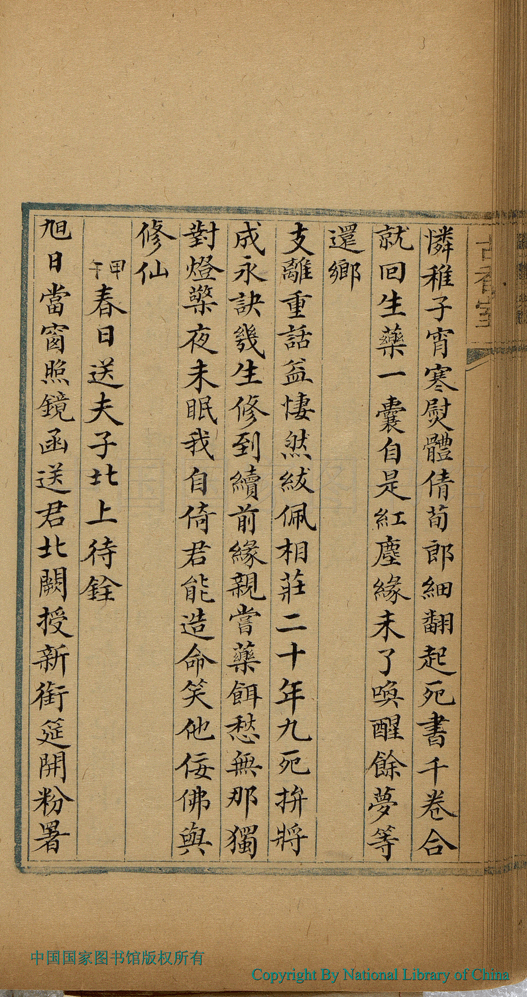 古香室
憐稚子宵寒熨體倩荀郎細翻起死書千卷合
就回生藥一囊自是紅塵緣未了喚醒餘夢等
還鄉
支離重話益悽然紱佩相莊二十年九死拚將
成永訣幾生修到續前緣親嘗藥餌愁無那獨
對燈檠夜未眠我自倚君能造命笑他佞佛與
修仙
甲午春日送夫子北上待銓
旭日當窗照鏡函送君北闕授新銜筵開粉署
中国国家图书馆版权所有
Copyright By National Library of China